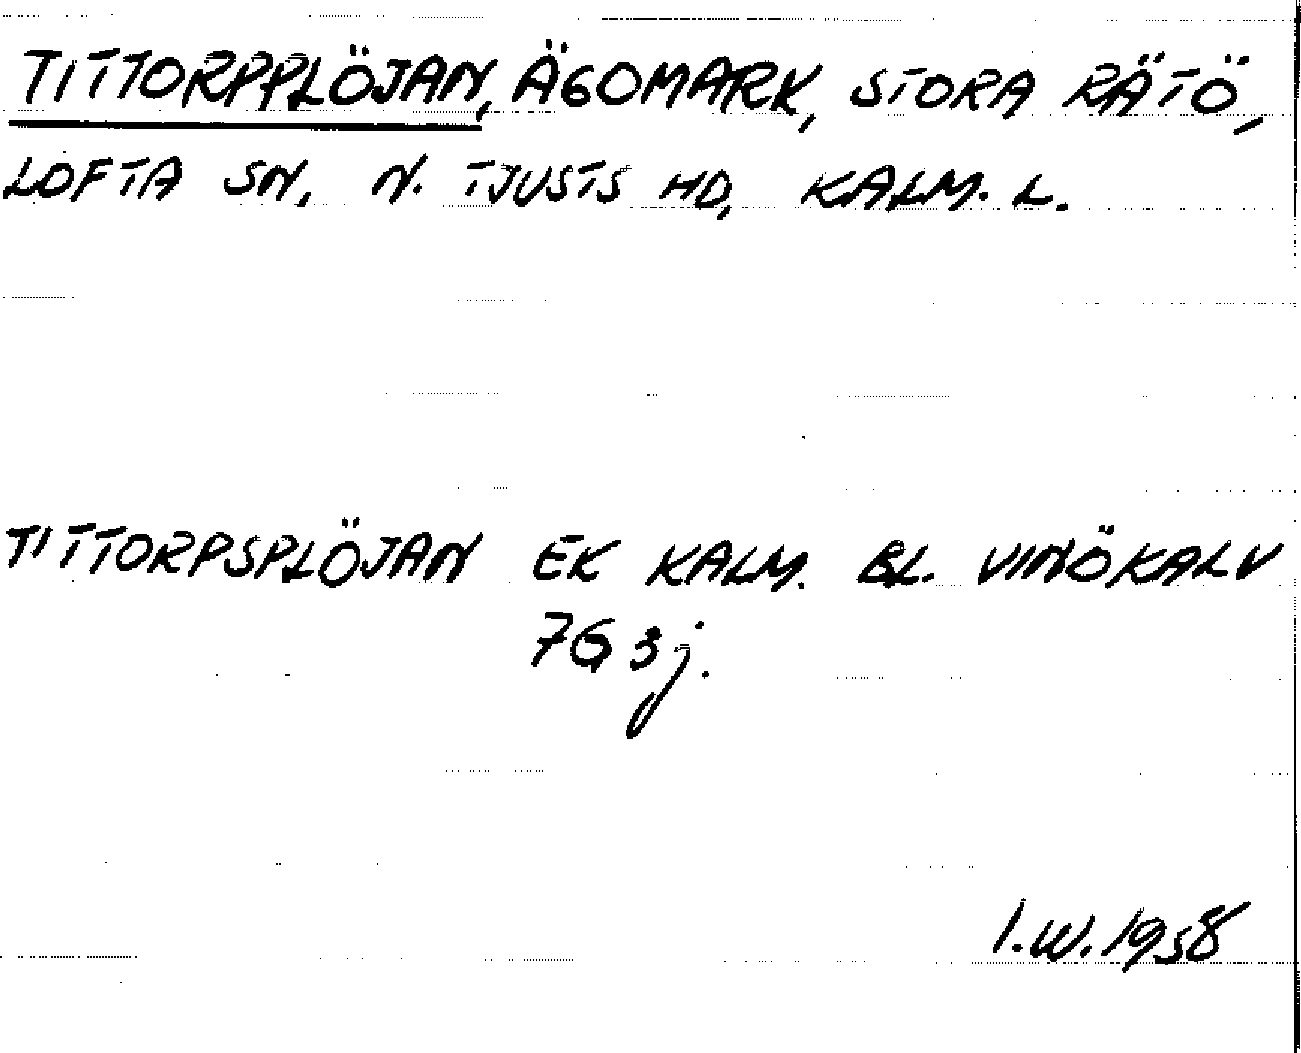 TITTORPPLÖJAN, ÄGOMARK, STORA RÄTÖ,
LOFTA SN, N. TJUSTS HD, KALM. L.
TITTORPSPLÖJAN EK KALM. BL. VINÖKALV
7G 3j.
I.W. 1958